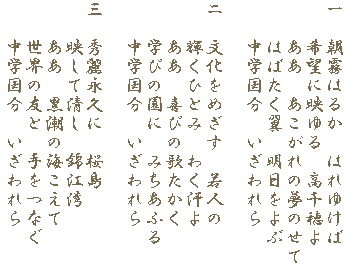 一
朝霧はるか はれゆけば
希望に映ゆる 高千穂よ
ああ あこがれの夢のせて
はばたく翼 明日をよぶ
中学国分 いざわれら
二
文化をめざす 若人の
輝くひとみ わく汗よ
ああ 喜びの歌たかく
学びの園に みちあふる
中学国分 いざわれら
三
秀麗永久に 桜島
映して清し 錦江湾
ああ 黒潮の海こえて
世界の友と 手をつなぐ
中学国分 いざわれら